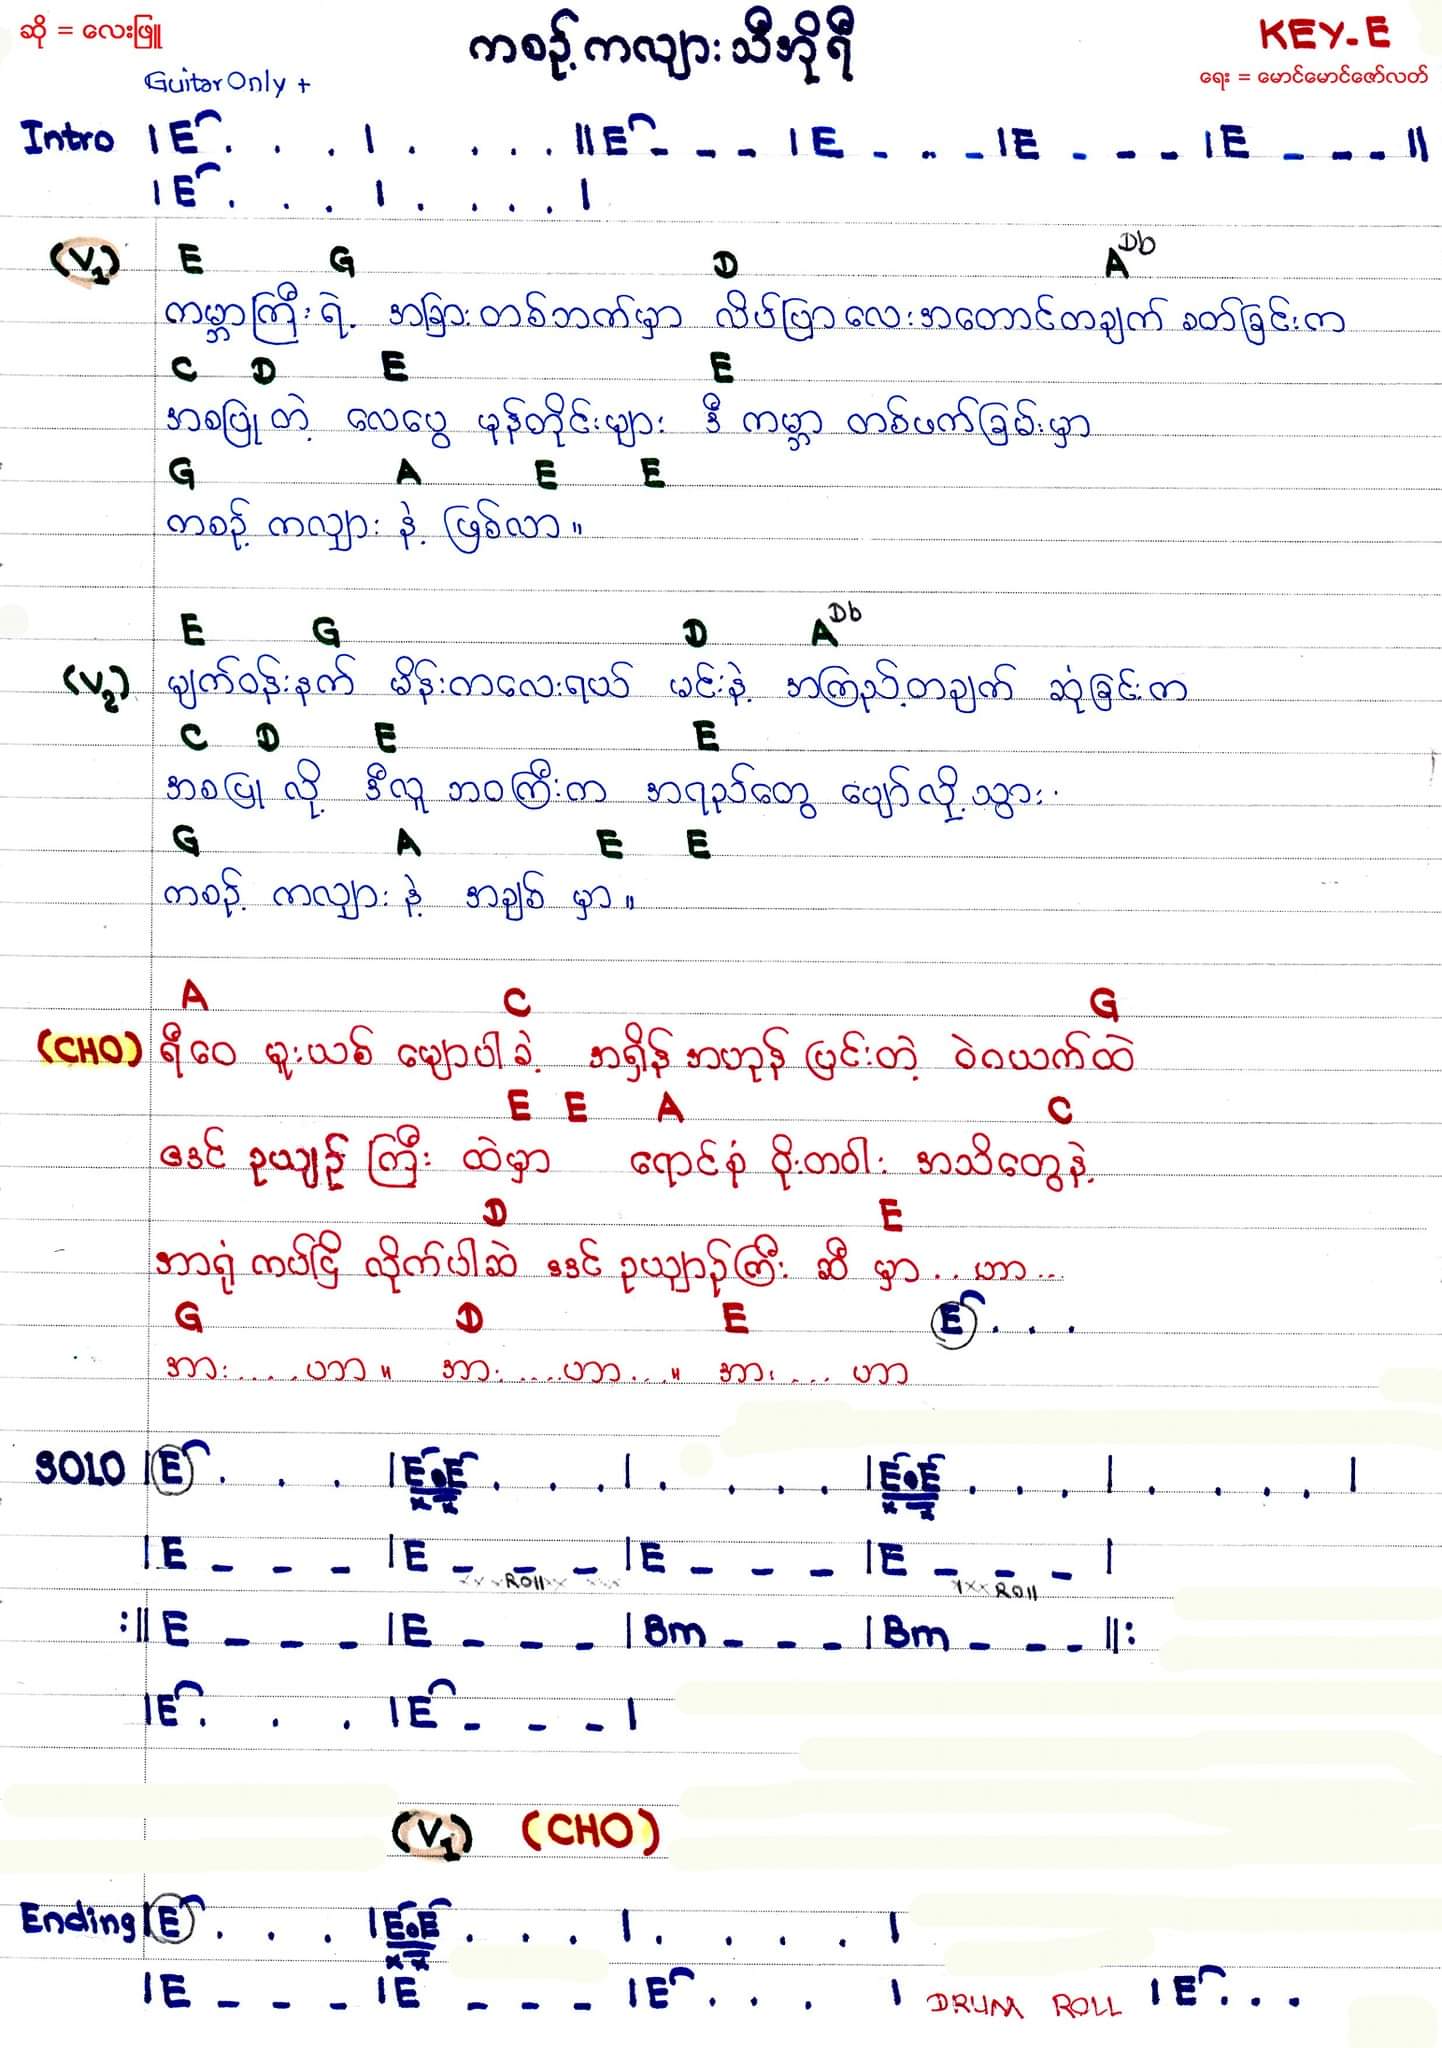 ဆို = လေးဖြူ
ကစဉ့်ကလျားသီအိုရီ
KEY-E
Guitar Only +
ရေး = မောင်မောင်ဇော်လတ်
Intro | E . . . | . . . . || E - - - | E - - - | E - - - | E - - - ||
| E . . . | . . . . |
(V1) E G D A Db
ကမ္ဘာကြီးရဲ့ အခြားတစ်ဘက်မှာ လိပ်ပြာလေးအတောင်တချက် ခတ်ခြင်းက
C D E E
အစပြုတဲ့ လေပွေ မုန်တိုင်းများ ဒီ ကမ္ဘာ တစ်ဖက်ခြမ်းမှာ
G A E E
ကစဉ့် ကလျှား နဲ့ ဖြစ်လာ။
E G D A Db
(V2) မျက်ဝန်းနက် မိန်းကလေးရယ် မင်းနဲ့ အကြည့်တချက် ဆုံခြင်းက
C D E E
အစပြု လို့ ဒီလူ ဘဝကြီးက အရည်တွေ ပျော်လို့သွား
G A E E
ကစဉ့် ကလျှား နဲ့ အချစ် မှာ။
A C G
(CHO) ရီဝေ မူးယစ် မျောပါခဲ့ အရှိန် အဟုန် ပြင်းတဲ့ ဝဲဂယက်ထဲ
E E A C
ဧဒင် ဥယျာဉ် ကြီး ထဲမှာ ရောင်စုံ ဖိုးတဝါး အသိတွေနဲ့
D E
အာရုံ ကပ်ငြိ လိုက်ပါဆဲ ဧဒင် ဥယျာဉ်ကြီး ဆီ မှာ .. ဟာ ...
G D E E . . .
အား ..... ဟာ ။ အား .....ဟာ ... ။ အား .... ဟာ
SOLO | E . . . | E . E . . . | . . . . | E . E . . . | . . . . |
| E - - - | E - - - | E - - - | E - - - |
Roll Roll
:|| E - - - | E - - - | Bm - - - | Bm - - - ||:
| E . . . | E - - - |
(V1) (CHO)
Ending | E . . . | E . E . . . | . . . . |
| E - - - | E - - - | E . . . | DRUM ROLL | E . . .